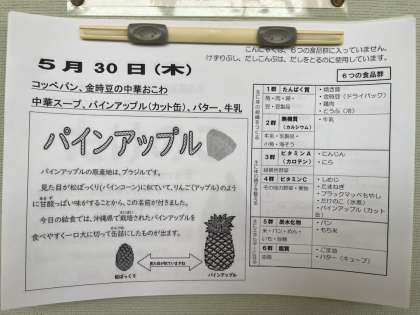 こんにゃくは、6つの食品群に入っていません。
けずりぶし、だしこんぶは、だしをとるのに使用しています。
5月30日(木)
コッペパン、金時豆の中華おこわ
中華スープ、パインアップル(カット缶)、バター、牛乳
パインアップル
パインアップルの原産地は、ブラジルです。
見た目が松ぼっくり(パインコーン)に似ていて、りんご(アップル)のよう
に甘酸っぱい味がすることから、この名前が付きました。
今日の給食では、沖縄県で栽培されたパインアップルを
食べやすく一口大に切って缶詰にしたものが出ます。
松ぼっくり
見た目が似ていますね
パインアップル
6つの食品群
1群 たんぱく質
・焼き豚
・金時豆(ドライパック)
・鶏肉
・とうふ(冷)
2群 無機質
(カルシウム)
・牛乳
3群 ビタミンA
(カロテン)
・にんじん
・にら
緑黄色野菜
4群 ビタミンC
その他の野菜・果物
・しめじ
・たまねぎ
・ブラックマッペもやし
・たけのこ(水煮)
・パインアップル(カット缶)
5群 炭水化物
・パン
・もち米
6群 脂質
・ごま油
・バター(キューブ)